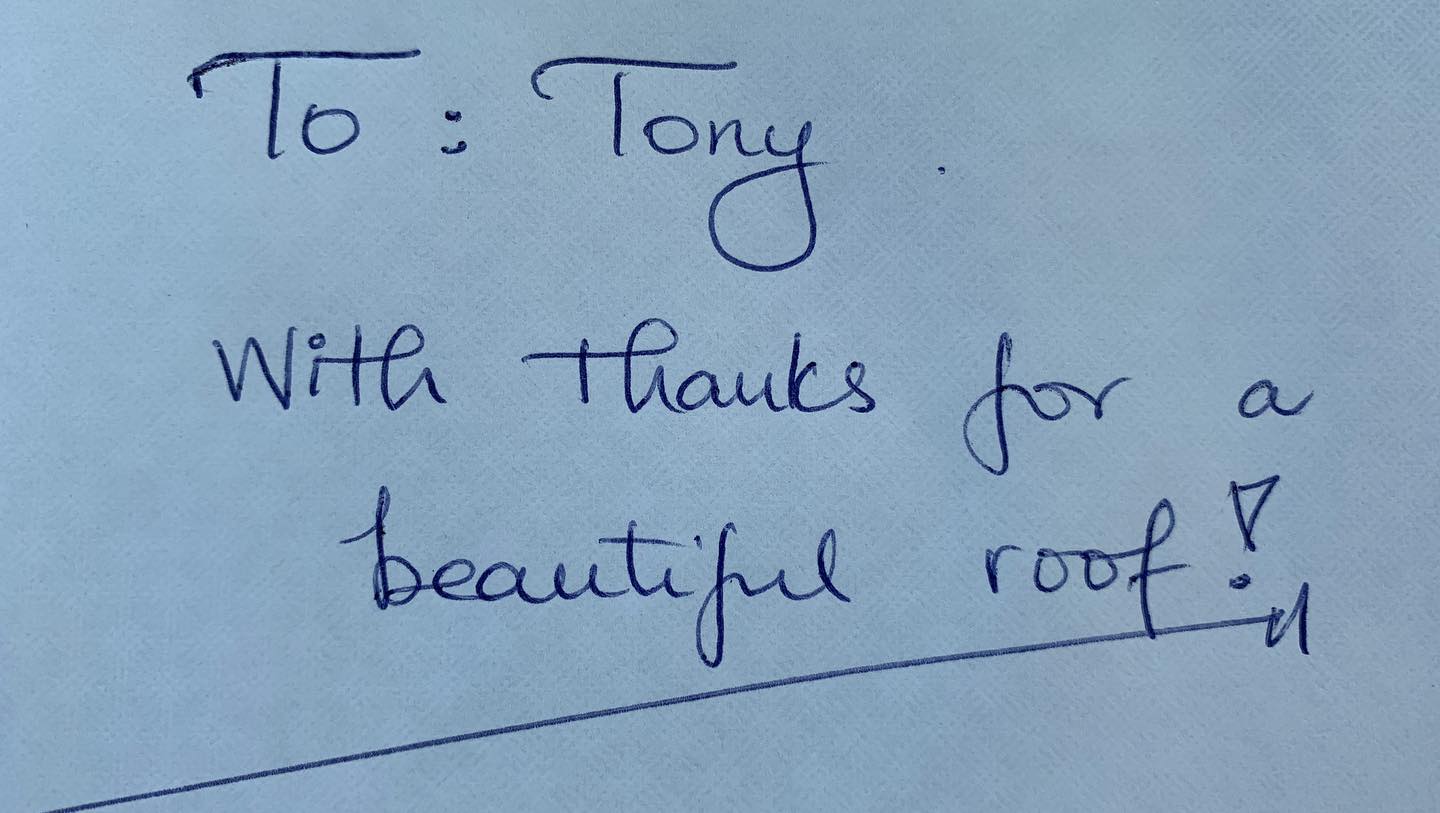 To: Tony
With thanks for a
beautiful roof!